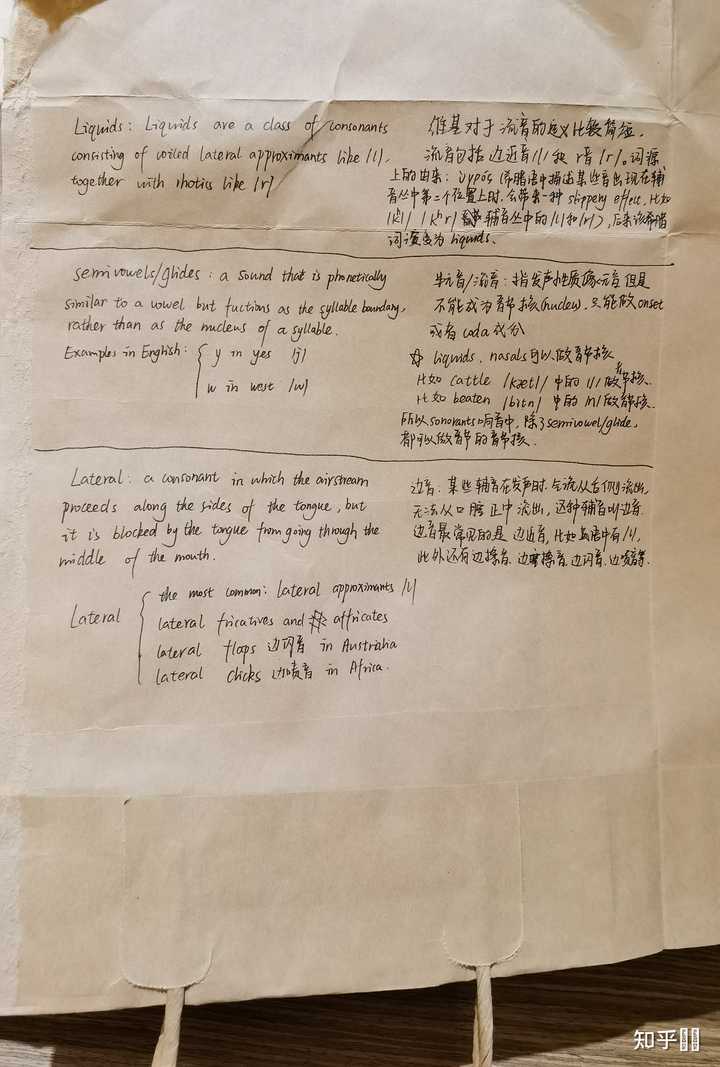 Liquids: Liquids are a class of consonants
consisting of voiced lateral approximants like /l/,
together with rhotics like /r/
维基对于流音的定义比较简短,
流音包括边近音/l/和r音/r/。词源
上的由来: ὑγρός (希腊语中描述某些音出现在辅
音丛中第二个位置上时,会带来一种 slippery effect, 比如
辅音丛中的/l/和/r/), 后来该希腊
词演变为 liquids.
semivowels/glides: a sound that is phonetically
similar to a vowel but fuctions as the syllable boundary,
rather than as the nucleus of a syllable.
Examples in English: { y in yes /j/
w in west /w/
半元音/流音: 指发声性质像元音但是
不能成为音节核(nucleu), 只能做onset
或者 coda 成分
☆ liquids, nasals可以做音节核
比如 cattle /kætl/ 中的 /l/ 做音节核.
比如 beaten /bitn/ 中的 /n/ 做音节核.
所以sonorants响音中, 除了semivowel/glide,
都可以做音节的音节核.
Lateral: a consonant in which the airstream
proceeds along the sides of the tongue, but
it is blocked by the tongue from going through the
middle of the mouth.
边音: 某些辅音在发声时, 气流从舌侧流出,
无法从口腔正中流出, 这种辅音叫边音.
边音最常见的是 边近音, 比如英语中有/l/,
此外还有边擦音, 边塞擦音, 边闪音, 边喷音等.
Lateral { the most common: lateral approximants /l/
lateral fricatives and affricates
lateral flops 边闪音 in Austrilia
lateral clicks 边啧音 in Africa.
知乎